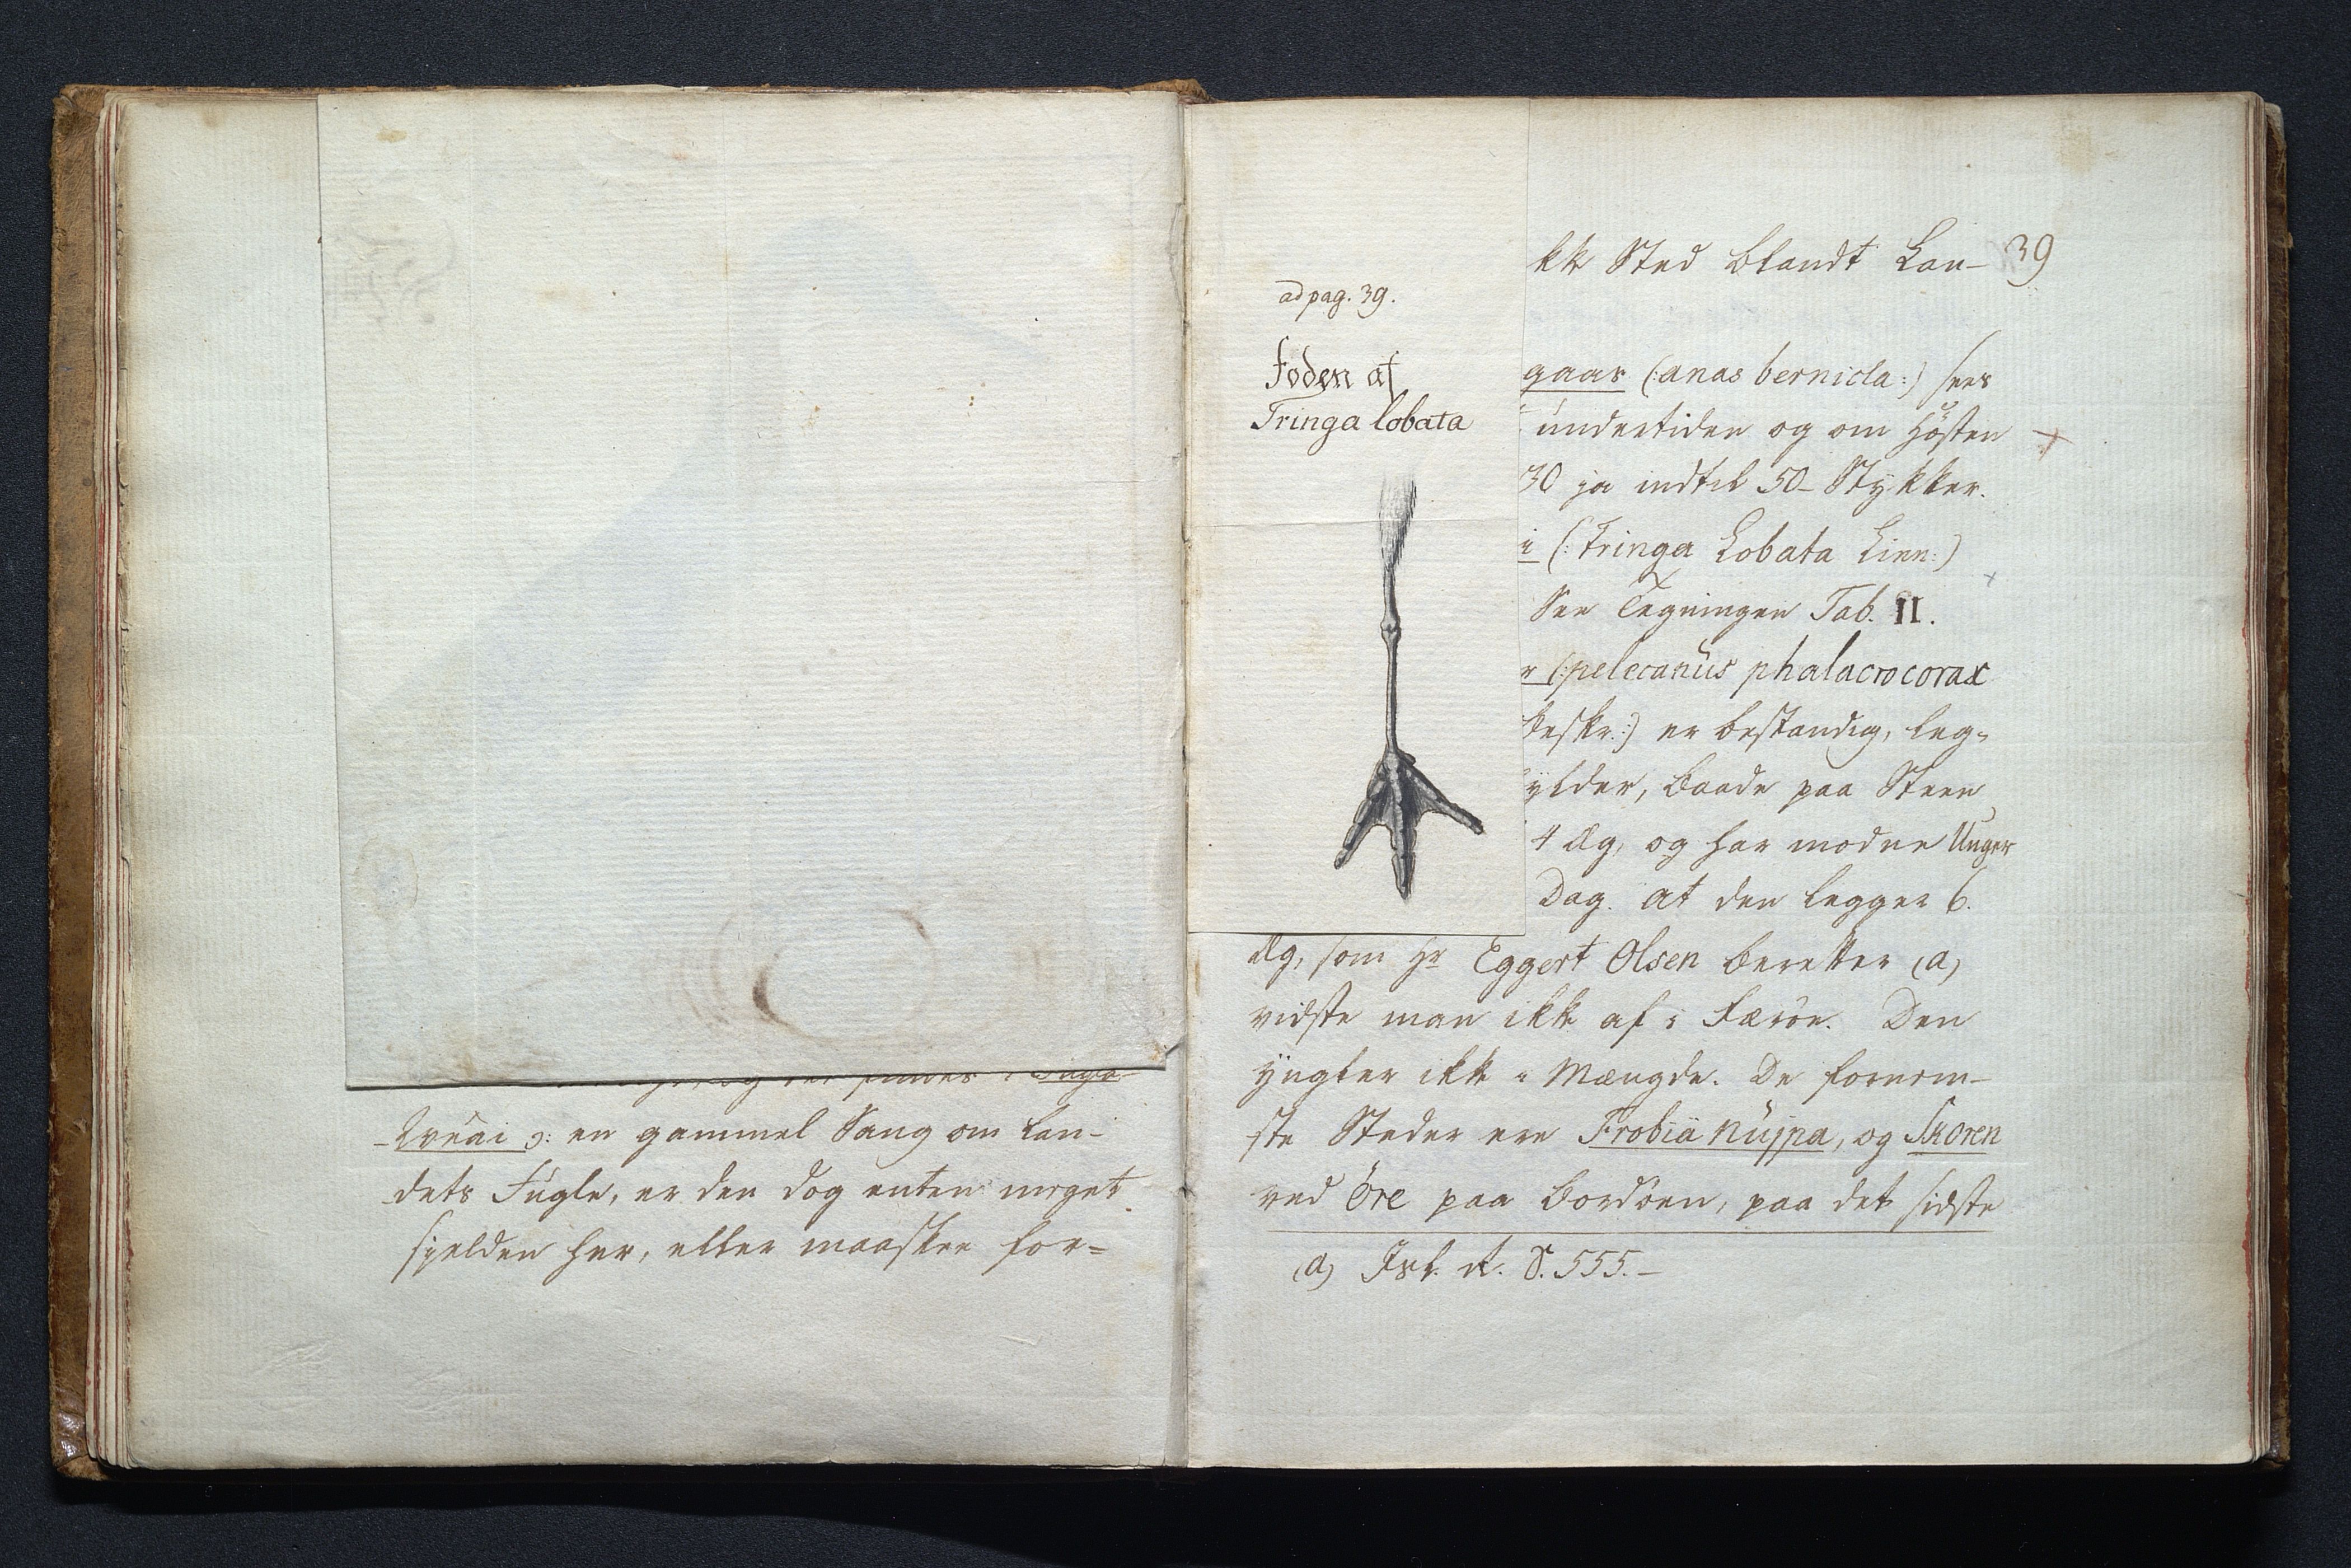 -Qvêai ɔ: en gammel Sang om Lan-
dets Fugle, er den dog enten meget
sjelden her, eller maaskee for=
39
kke Sted blandt Lan-
ad pag. 39.
Foden af
Tringa lobata
gaas (:anas bernicla:) sees
undertiden og om Hösten
30 ja indtil 50 Stykker.
(: Tringa Lobata Linn:)
See Tegningen Tab. II.
r (:pelecanus phalacrocorax
beskr.:) er bestandig, leg=
ylder, baade paa Steen
4 Æg, og har modne Unger
Dag. at den legger 6.
Æg, som Hr Eggert Olsen beretter (a)
vidste man ikke af i Færöe. Den
yngler ikke i Mængde. De fornem-
ste Steder ere Frobiä nujpa, og Skoren
ved Öre paa Bordöen, paa det sidste
(a) Isl. R. S. 555.-